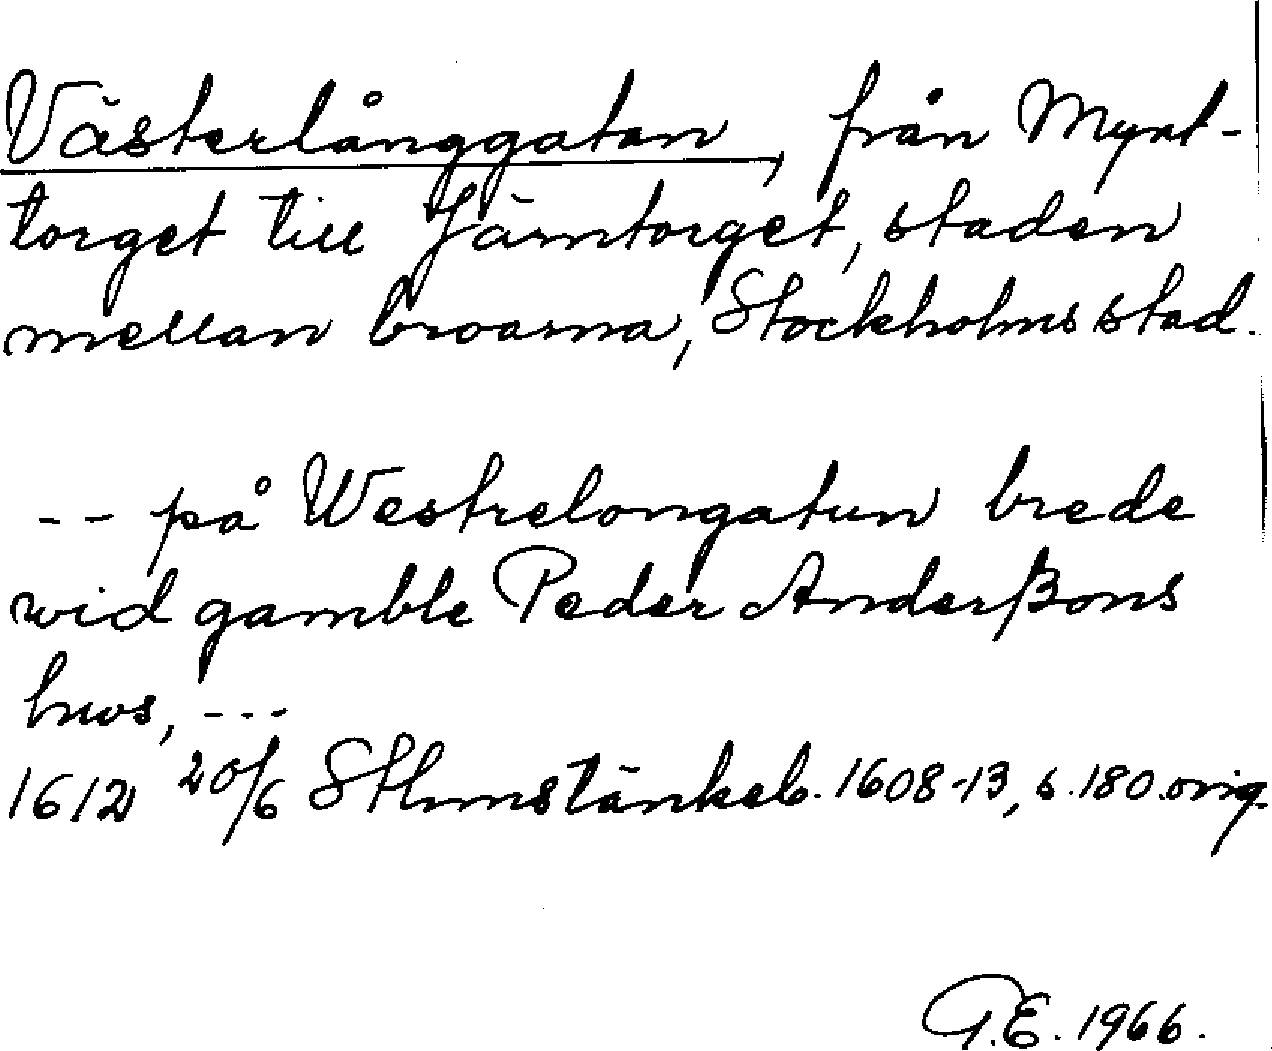 Västerlånggatan, från Mynt-
torget till Järntorget, staden
mellan broarna, Stockholms stad.
-- på Westrelongatun brede
wid gamble Peder Anderßons
hws, ---
1612 20/6 Sthmstänkeb. 1608-13, s. 180.orig.
G.E. 1966.